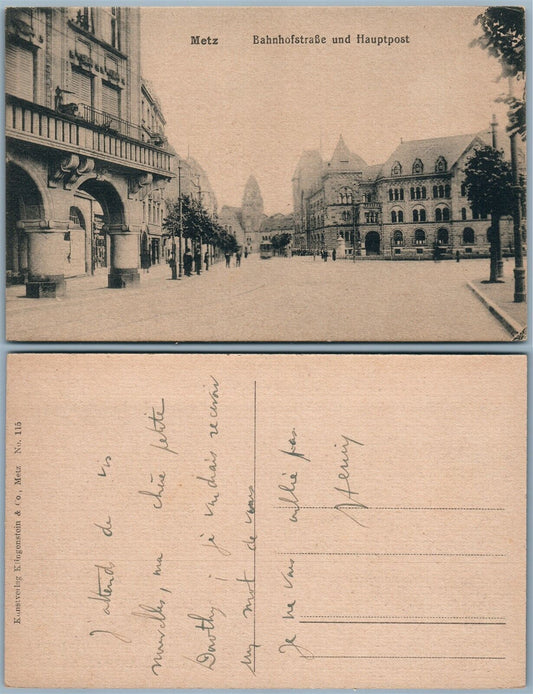 Metz Bahnhofstraße und Hauptpost
Kunstverlag Klingenstein & Co., Metz No. 115
J'attend de vs
nouvelles, ma chère petite
Dorothy ; je voudrais recevoir
un mot de vous
Je ne vous oublie pas
Henry